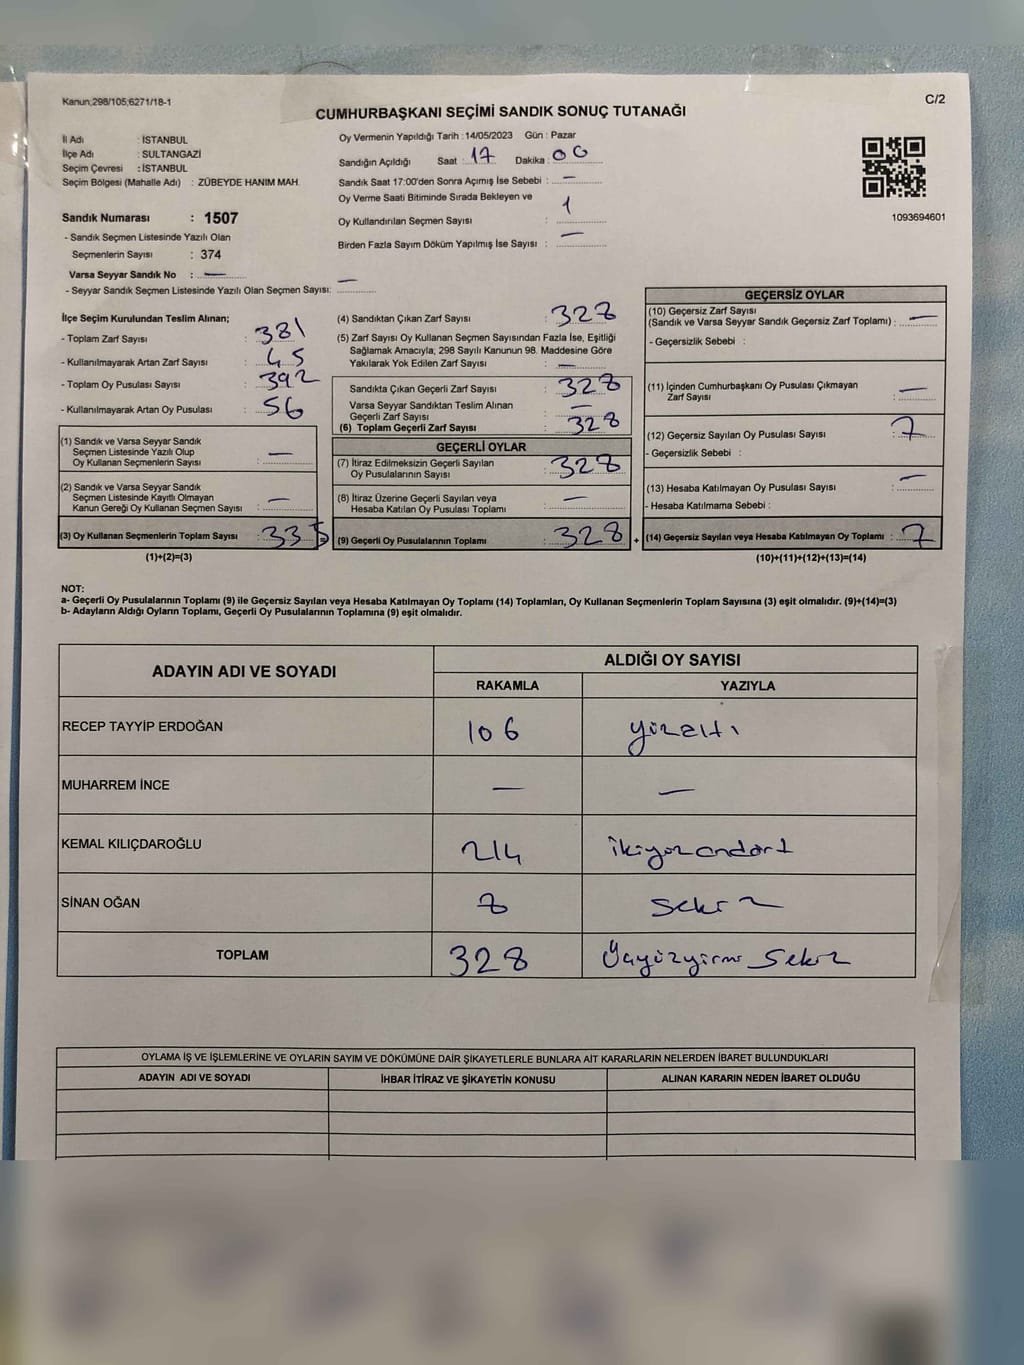 Kanun;298/105;6271/18-1
C/2
CUMHURBAŞKANI SEÇİMİ SANDIK SONUÇ TUTANAĞI
İl Adı : İSTANBUL
İlçe Adı : SULTANGAZİ
Seçim Çevresi : İSTANBUL
Seçim Bölgesi (Mahalle Adı) : ZÜBEYDE HANIM MAH.
Sandık Numarası : 1507
- Sandık Seçmen Listesinde Yazılı Olan
Seçmenlerin Sayısı : 374
Varsa Seyyar Sandık No : —
- Seyyar Sandık Seçmen Listesinde Yazılı Olan Seçmen Sayısı: —
Oy Vermenin Yapıldığı Tarih :14/05/2023 Gün : Pazar
Sandığın Açıldığı Saat : 17 Dakika : 00
Sandık Saat 17:00'den Sonra Açımış İse Sebebi : —
Oy Verme Saati Bitiminde Sırada Bekleyen ve
Oy Kullandırılan Seçmen Sayısı : 1
Birden Fazla Sayım Döküm Yapılmış İse Sayısı : —
1093694601
İlçe Seçim Kurulundan Teslim Alınan;
- Toplam Zarf Sayısı : 381
- Kullanılmayarak Artan Zarf Sayısı : 45
- Toplam Oy Pusulası Sayısı : 392
- Kullanılmayarak Artan Oy Pusulası : 56
(1) Sandık ve Varsa Seyyar Sandık
Seçmen Listesinde Yazılı Olup
Oy Kullanan Seçmenlerin Sayısı : —
(2) Sandık ve Varsa Seyyar Sandık
Seçmen Listesinde Kayıtlı Olmayan
Kanun Gereği Oy Kullanan Seçmen Sayısı : —
(3) Oy Kullanan Seçmenlerin Toplam Sayısı : 335
(1)+(2)=(3)
(4) Sandıktan Çıkan Zarf Sayısı : 328
(5) Zarf Sayısı Oy Kullanan Seçmen Sayısından Fazla İse, Eşitliği
Sağlamak Amacıyla, 298 Sayılı Kanunun 98. Maddesine Göre
Yakılarak Yok Edilen Zarf Sayısı : —
Sandıkta Çıkan Geçerli Zarf Sayısı : 328
Varsa Seyyar Sandıktan Teslim Alınan
Geçerli Zarf Sayısı : —
(6) Toplam Geçerli Zarf Sayısı : 328
GEÇERLİ OYLAR
(7) İtiraz Edilmeksizin Geçerli Sayılan
Oy Pusulalarının Sayısı : 328
(8) İtiraz Üzerine Geçerli Sayılan veya
Hesaba Katılan Oy Pusulası Toplamı : —
(9) Geçerli Oy Pusulalarının Toplamı : 328
+
GEÇERSİZ OYLAR
(10) Geçersiz Zarf Sayısı
(Sandık ve Varsa Seyyar Sandık Geçersiz Zarf Toplamı) : —
- Geçersizlik Sebebi :
(11) İçinden Cumhurbaşkanı Oy Pusulası Çıkmayan
Zarf Sayısı : —
(12) Geçersiz Sayılan Oy Pusulası Sayısı : 7
- Geçersizlik Sebebi :
(13) Hesaba Katılmayan Oy Pusulası Sayısı : —
- Hesaba Katılmama Sebebi :
(14) Geçersiz Sayılan veya Hesaba Katılmayan Oy Toplamı : 7
(10)+(11)+(12)+(13)=(14)
NOT:
a- Geçerli Oy Pusulalarının Toplamı (9) ile Geçersiz Sayılan veya Hesaba Katılmayan Oy Toplamı (14) Toplamları, Oy Kullanan Seçmenlerin Toplam Sayısına (3) eşit olmalıdır. (9)+(14)=(3)
b- Adayların Aldığı Oyların Toplamı, Geçerli Oy Pusulalarının Toplamına (9) eşit olmalıdır.
ADAYIN ADI VE SOYADI ALDIĞI OY SAYISI
RAKAMLA YAZIYLA
RECEP TAYYİP ERDOĞAN 106 yüzaltı
MUHARREM İNCE — —
KEMAL KILIÇDAROĞLU 214 ikiyüzondört
SİNAN OĞAN 8 sekiz
TOPLAM 328 Üçyüzyirmi Sekiz
OYLAMA İŞ VE İŞLEMLERİNE VE OYLARIN SAYIM VE DÖKÜMÜNE DAİR ŞİKAYETLERLE BUNLARA AİT KARARLARIN NELERDEN İBARET BULUNDUKLARI
ADAYIN ADI VE SOYADI İHBAR İTİRAZ VE ŞİKAYETİN KONUSU ALINAN KARARIN NEDEN İBARET OLDUĞU